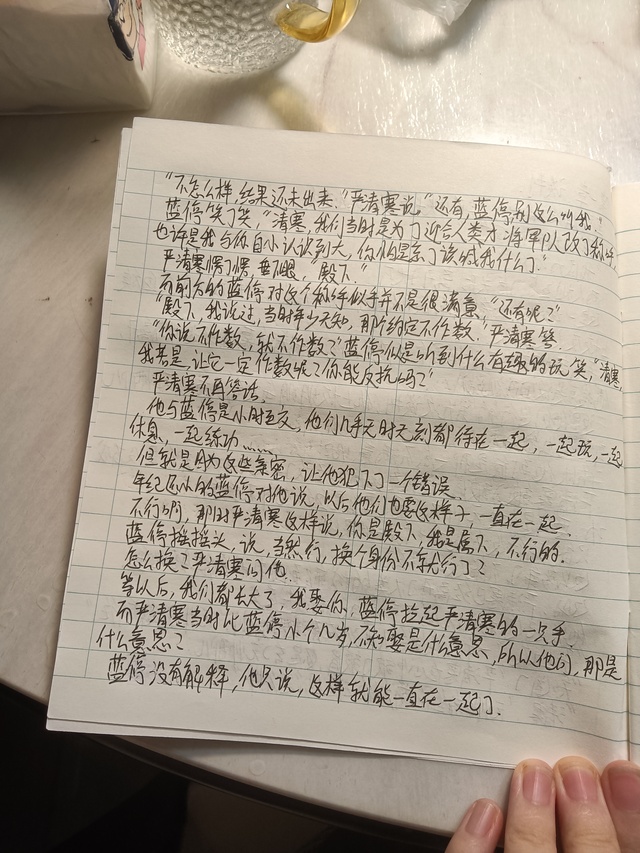 “不怎么样,结果还未出来.”严清寒说,“还有,蓝停,别这么叫我.”
蓝停笑了笑“清寒,我们当时是为了迎合人类才将军队改了称呼,
也许是我与你自小认识到大,你怕是忘了该喊我什么了.”
严清寒愣了愣,垂眼,“殿下.”
而前方的蓝停对这个称呼似乎并不是很满意.“还有呢?”
“殿下,我说过,当时年少无知,那个约定不作数.”严清寒答.
“你说不作数,就不作数?”蓝停似是听到什么有趣的玩笑,“清寒,
我若是,让它一定作数呢?你能反抗吗?”
严清寒不再答话.
他与蓝停是小时至交,他们几乎无时无刻都待在一起,一起玩,一起
休息,一起练功......
但就是因为这些亲密,让他犯下了一个错误.
年纪还小的蓝停对他说,以后他们也要这样子,一直在一起.
不行啊,那时严清寒这样说,你是殿下,我是属下,不行的.
蓝停摇摇头,说,当然行,换个身份不就行了?
怎么换?严清寒问他.
等以后,我们都长大了,我娶你.蓝停拉起严清寒的一只手.
而严清寒当时比蓝停小个几岁,不知娶是什么意思,所以他问,那是
什么意思?
蓝停没有解释,他只说,这样就能一直在一起了.